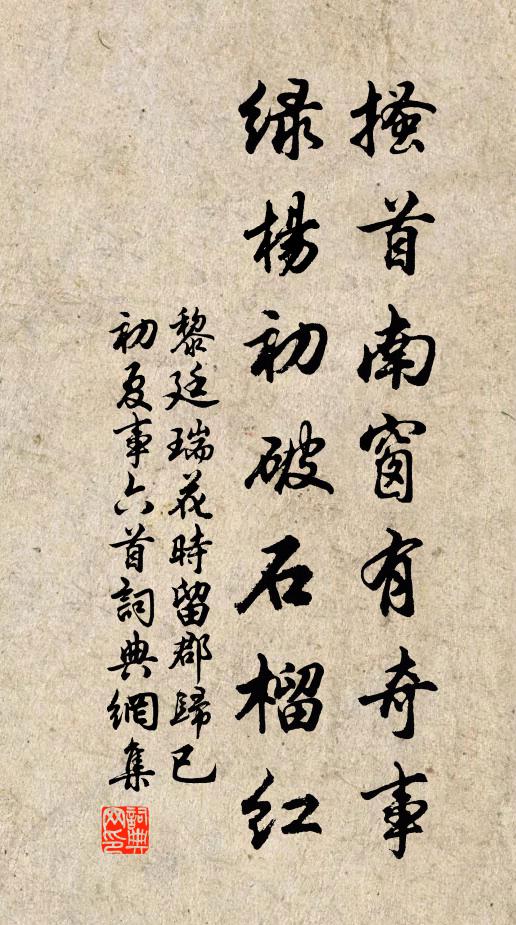 搔首南窗有奇事
绿杨初破石榴红
黎廷瑞花時留郡歸已
初夏事六首詞典網集
詞典网印